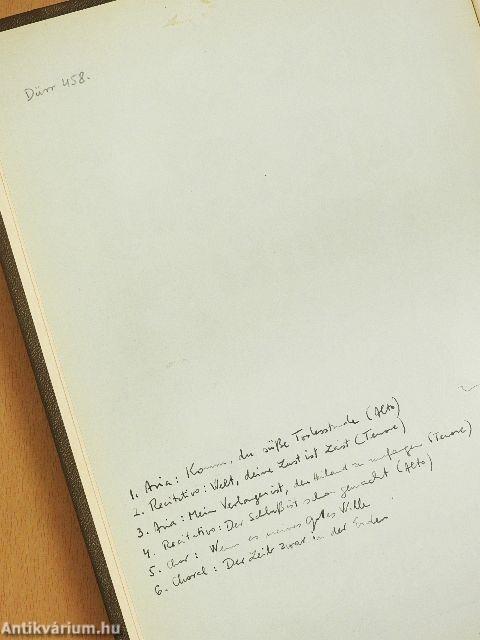 Dürr 458.
1. Aria: Komm, du süße Todesstunde (Alto)
2. Recitativo: Welt, deine Lust ist Last (Tenore)
3. Aria: Mein Verlangen ist, den Heiland zu umfangen (Tenore)
4. Recitativo: Der Schluß ist schon gemacht (Alto)
5. Chor: Wenn es meines Gottes Wille
6. Choral: Der Leib zwar in der Erden
Antikvárium.hu